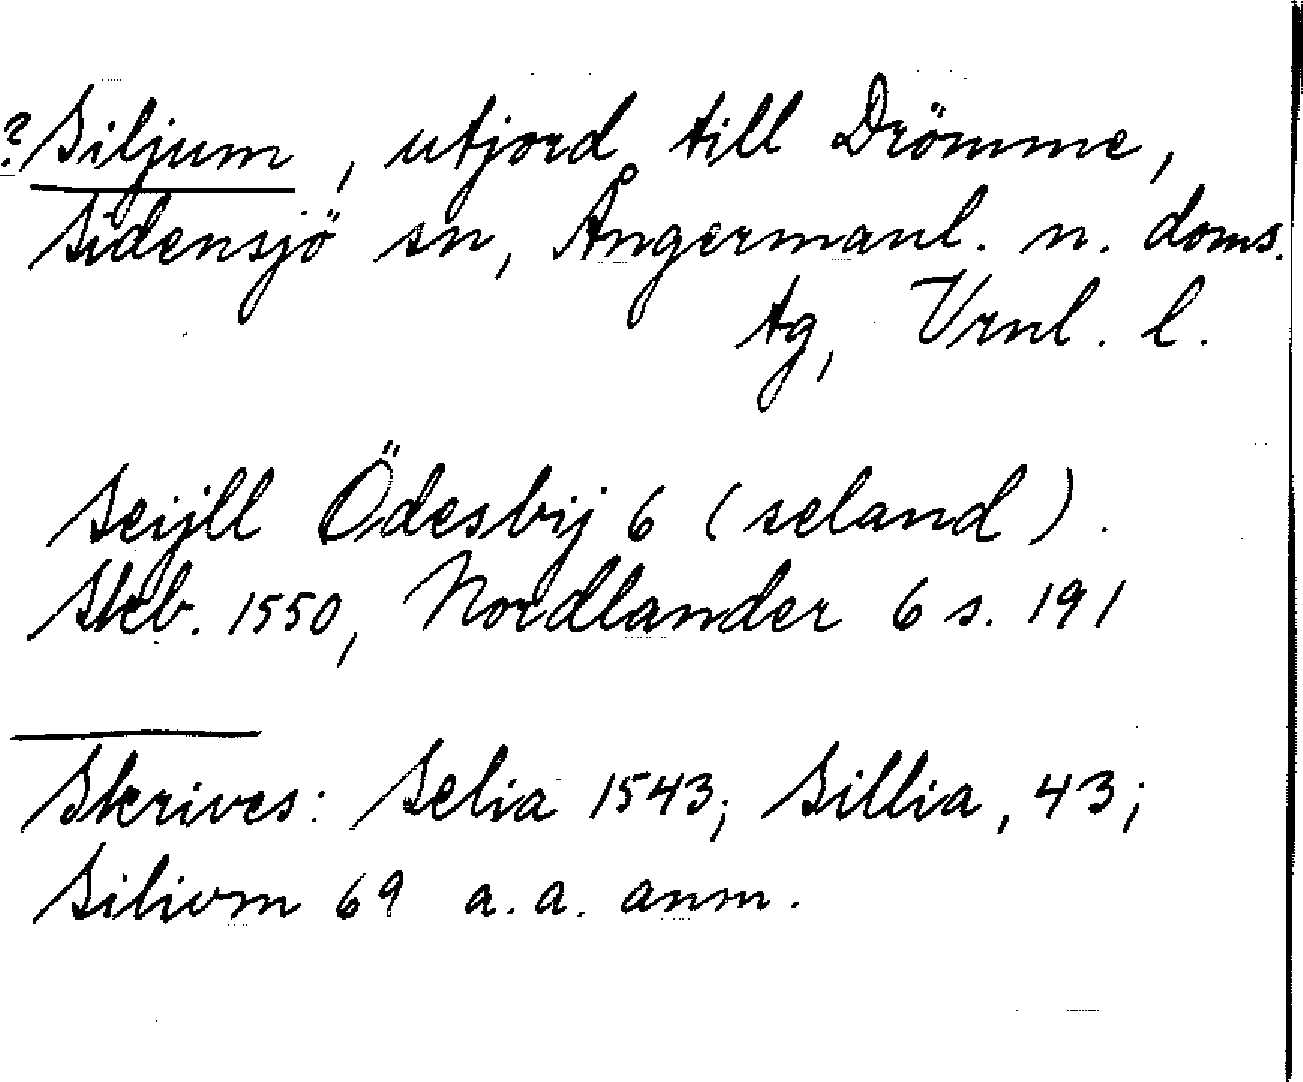 ? Siljum, utjord till Drömme,
Sidensjö sn, Ångermanl. n. doms.
tg, Vrnl. l.
Seijll Ödesbij 6 (seland).
Skb. 1550, Nordlander 6 s. 191
Skrives: Selia 1543; Sillia, 43;
Silivm 69 a. a. anm.